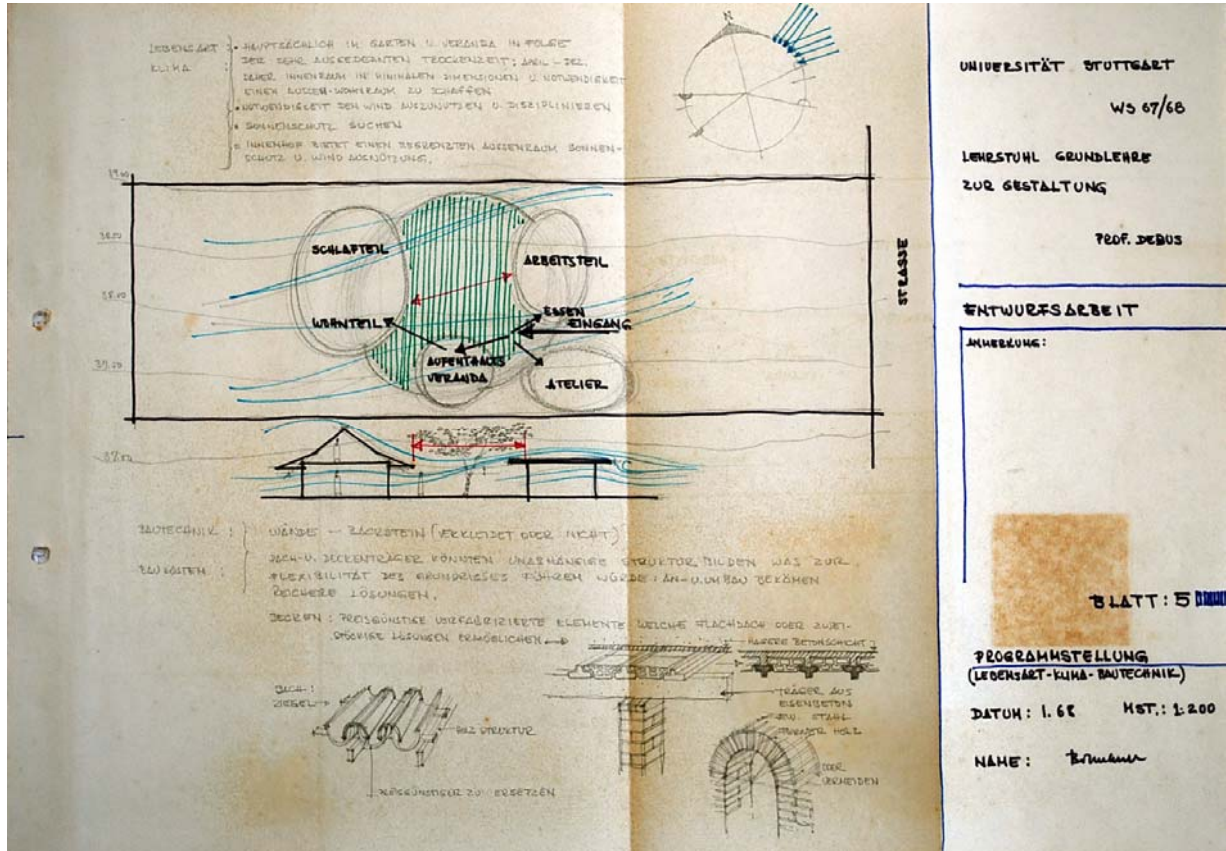 LEBENSART :
KLIMA :
• HAUPTSÄCHLICH IM GARTEN U. VERANDA IN FOLGE
DER SEHR AUSGEDEHNTEN TROCKENZEIT: APRIL - DEZ.
DAHER INNENRAUM IN MINIMALEN DIMENSIONEN U. NOTWENDIGKEIT
EINEN AUSSEN-WOHNRAUM ZU SCHAFFEN
• NOTWENDIGKEIT DEN WIND AUSZUNUTZEN U. DISZIPLINIEREN
• SONNENSCHUTZ SUCHEN
• INNENHOF BIETET EINEN BEGRENZTEN AUSSENRAUM SONNEN-
SCHUTZ U. WIND AUSNÜTZUNG.
N
SCHLAFTEIL
ARBEITSTEIL
WOHNTEIL
ESSEN
EINGANG
AUFENTHALTS
VERANDA
ATELIER
STRASSE
BAUTECHNIK :
BAUKOSTEN :
WÄNDE - BACKSTEIN (VERKLEIDET ODER NICHT)
DACH- U. DECKENTRÄGER KÖNNTEN UNABHÄNGIGE STRUKTUR BILDEN WAS ZUR
FLEXIBILITÄT DES GRUNDRISSES FÜHREN WÜRDE: AN- U. UMBAU BEKÄMEN
REICHERE LÖSUNGEN.
DECKEN : PREISGÜNSTIGE VORFABRIZIERTE ELEMENTE WELCHE FLACHDACH ODER ZWEI-
STÖCKIGE LÖSUNGEN ERMÖGLICHEN
MAGERE BETONSCHICHT
DACH-
ZIEGEL
HOLZ STRUKTUR
PREISGÜNSTIGER ZU ERSETZEN
TRÄGER AUS
EISENBETON
BZW. STAHL
ODER HOLZ
ODER
VERMEIDEN
UNIVERSITÄT STUTTGART
WS 67/68
LEHRSTUHL GRUNDLEHRE
ZUR GESTALTUNG
PROF. DEBUS
ENTWURFSARBEIT
ANMERKUNG:
BLATT: 5
PROGRAMMSTELLUNG
(LEBENSART-KLIMA-BAUTECHNIK)
DATUM: 1.68 MST.: 1:200
NAME: